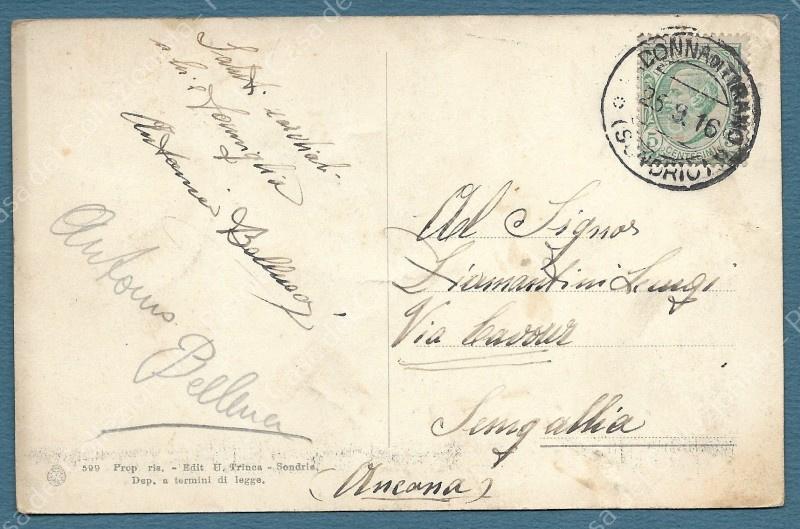 Saluti cordiali
a lei e famiglia
Antonio Bellucci
Antonio
Bellucci
599 Prop ris. - Edit U. Trinca - Sondrio.
Dep. a termini di legge.
MADONNA DI TIRANO
26.9.16
(SONDRIO)
CENTESIMI
Al Signor
Diamantini Luigi
Via Cavour
Senigallia
(Ancona)